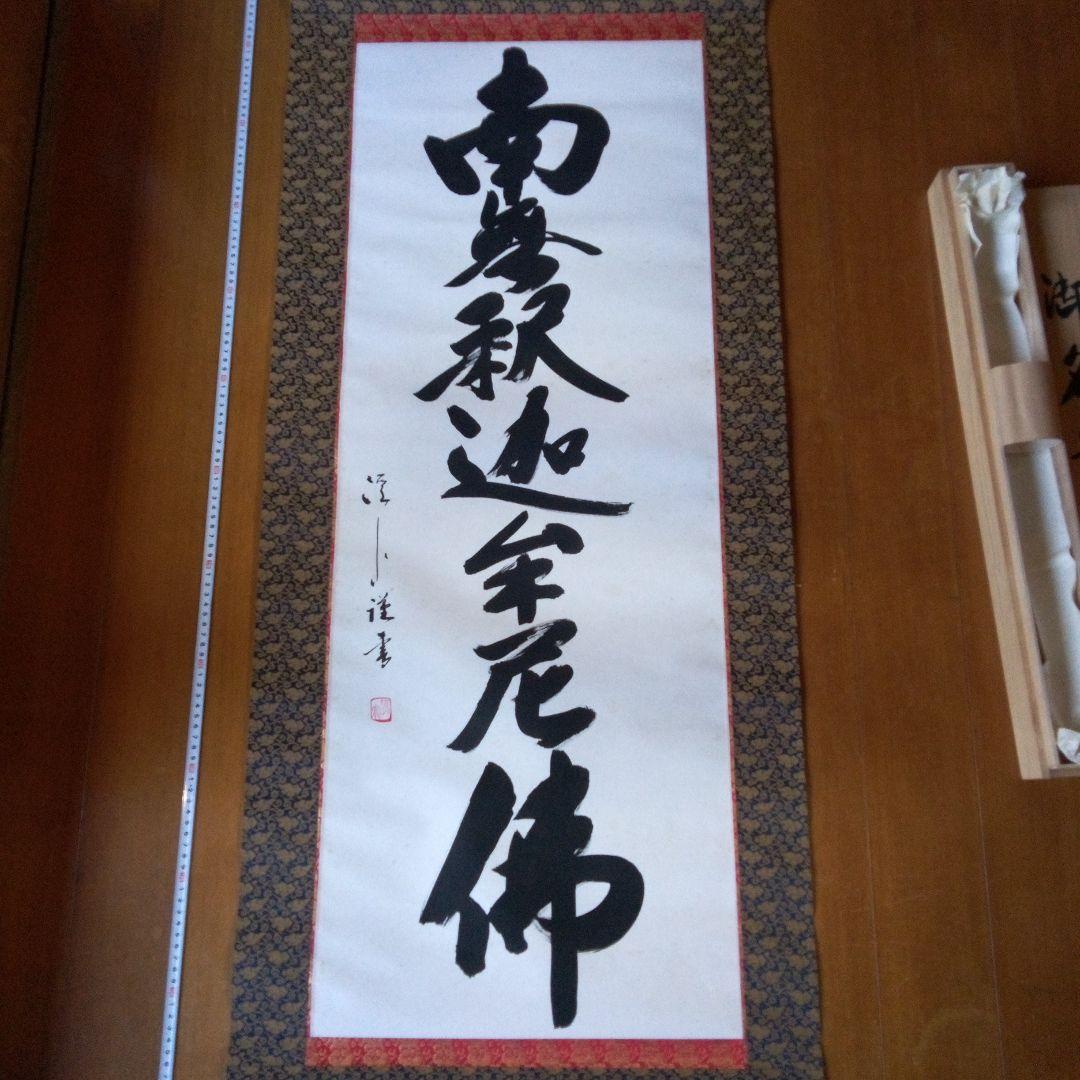 南無釈迦牟尼佛
謹書
御